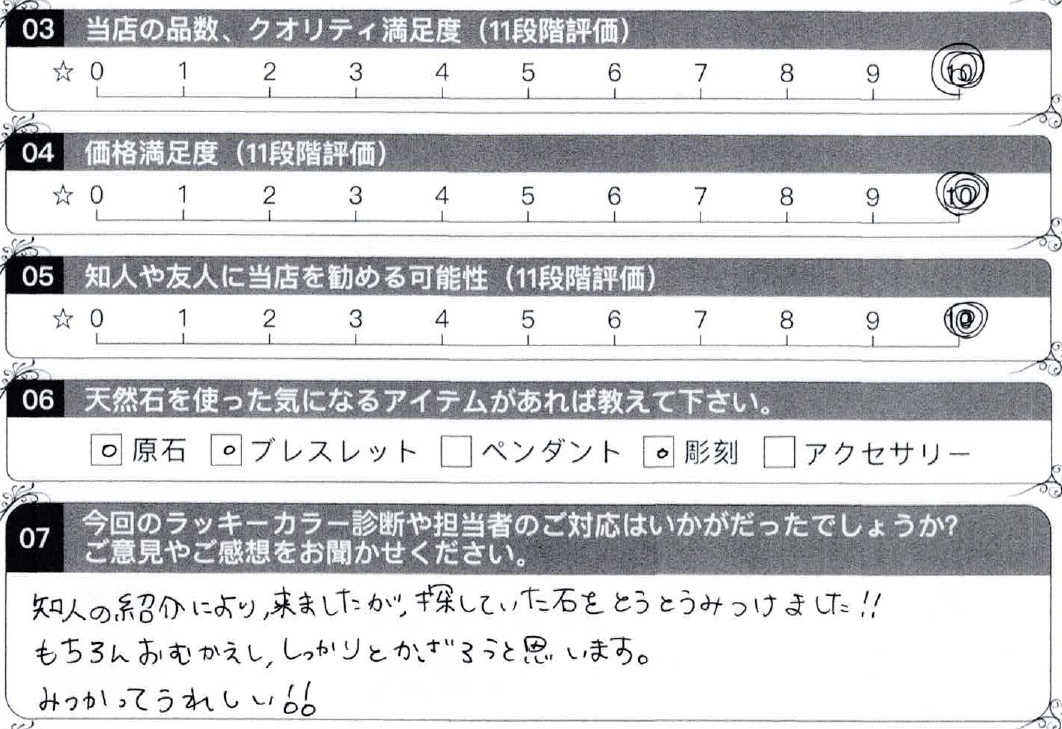 03 当店の品数、クオリティ満足度（11段階評価）
☆ 0 1 2 3 4 5 6 7 8 9 10
04 価格満足度（11段階評価）
☆ 0 1 2 3 4 5 6 7 8 9 10
05 知人や友人に当店を勧める可能性（11段階評価）
☆ 0 1 2 3 4 5 6 7 8 9 10
06 天然石を使った気になるアイテムがあれば教えて下さい。
原石 ブレスレット ペンダント 彫刻 アクセサリー
07 今回のラッキーカラー診断や担当者のご対応はいかがだったでしょうか?
ご意見やご感想をお聞かせください。
知人の紹介により,来ましたが,探していた石をとうとうみつけました!!
もちろんおむかえし,しっかりとかざろうと思います。
みつかってうれしい!!